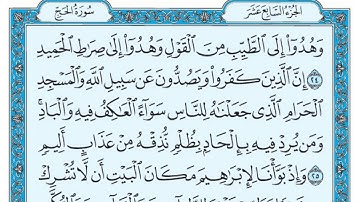 الجزء السابع عشر
سورة الحج
وَهُدُوٓا۟ إِلَى ٱلطَّيِّبِ مِنَ ٱلْقَوْلِ وَهُدُوٓا۟ إِلَىٰ صِرَٰطِ ٱلْحَمِيدِ
٢٤ إِنَّ ٱلَّذِينَ كَفَرُوا۟ وَيَصُدُّونَ عَن سَبِيلِ ٱللَّهِ وَٱلْمَسْجِدِ
ٱلْحَرَامِ ٱلَّذِى جَعَلْنَٰهُ لِلنَّاسِ سَوَآءً ٱلْعَٰكِفُ فِيهِ وَٱلْبَادِ
وَمَن يُرِدْ فِيهِ بِإِلْحَادٍۭ بِظُلْمٍ نُّذِقْهُ مِنْ عَذَابٍ أَلِيمٍ
٢٥ وَإِذْ بَوَّأْنَا لِإِبْرَٰهِيمَ مَكَانَ ٱلْبَيْتِ أَن لَّا تُشْرِكْ